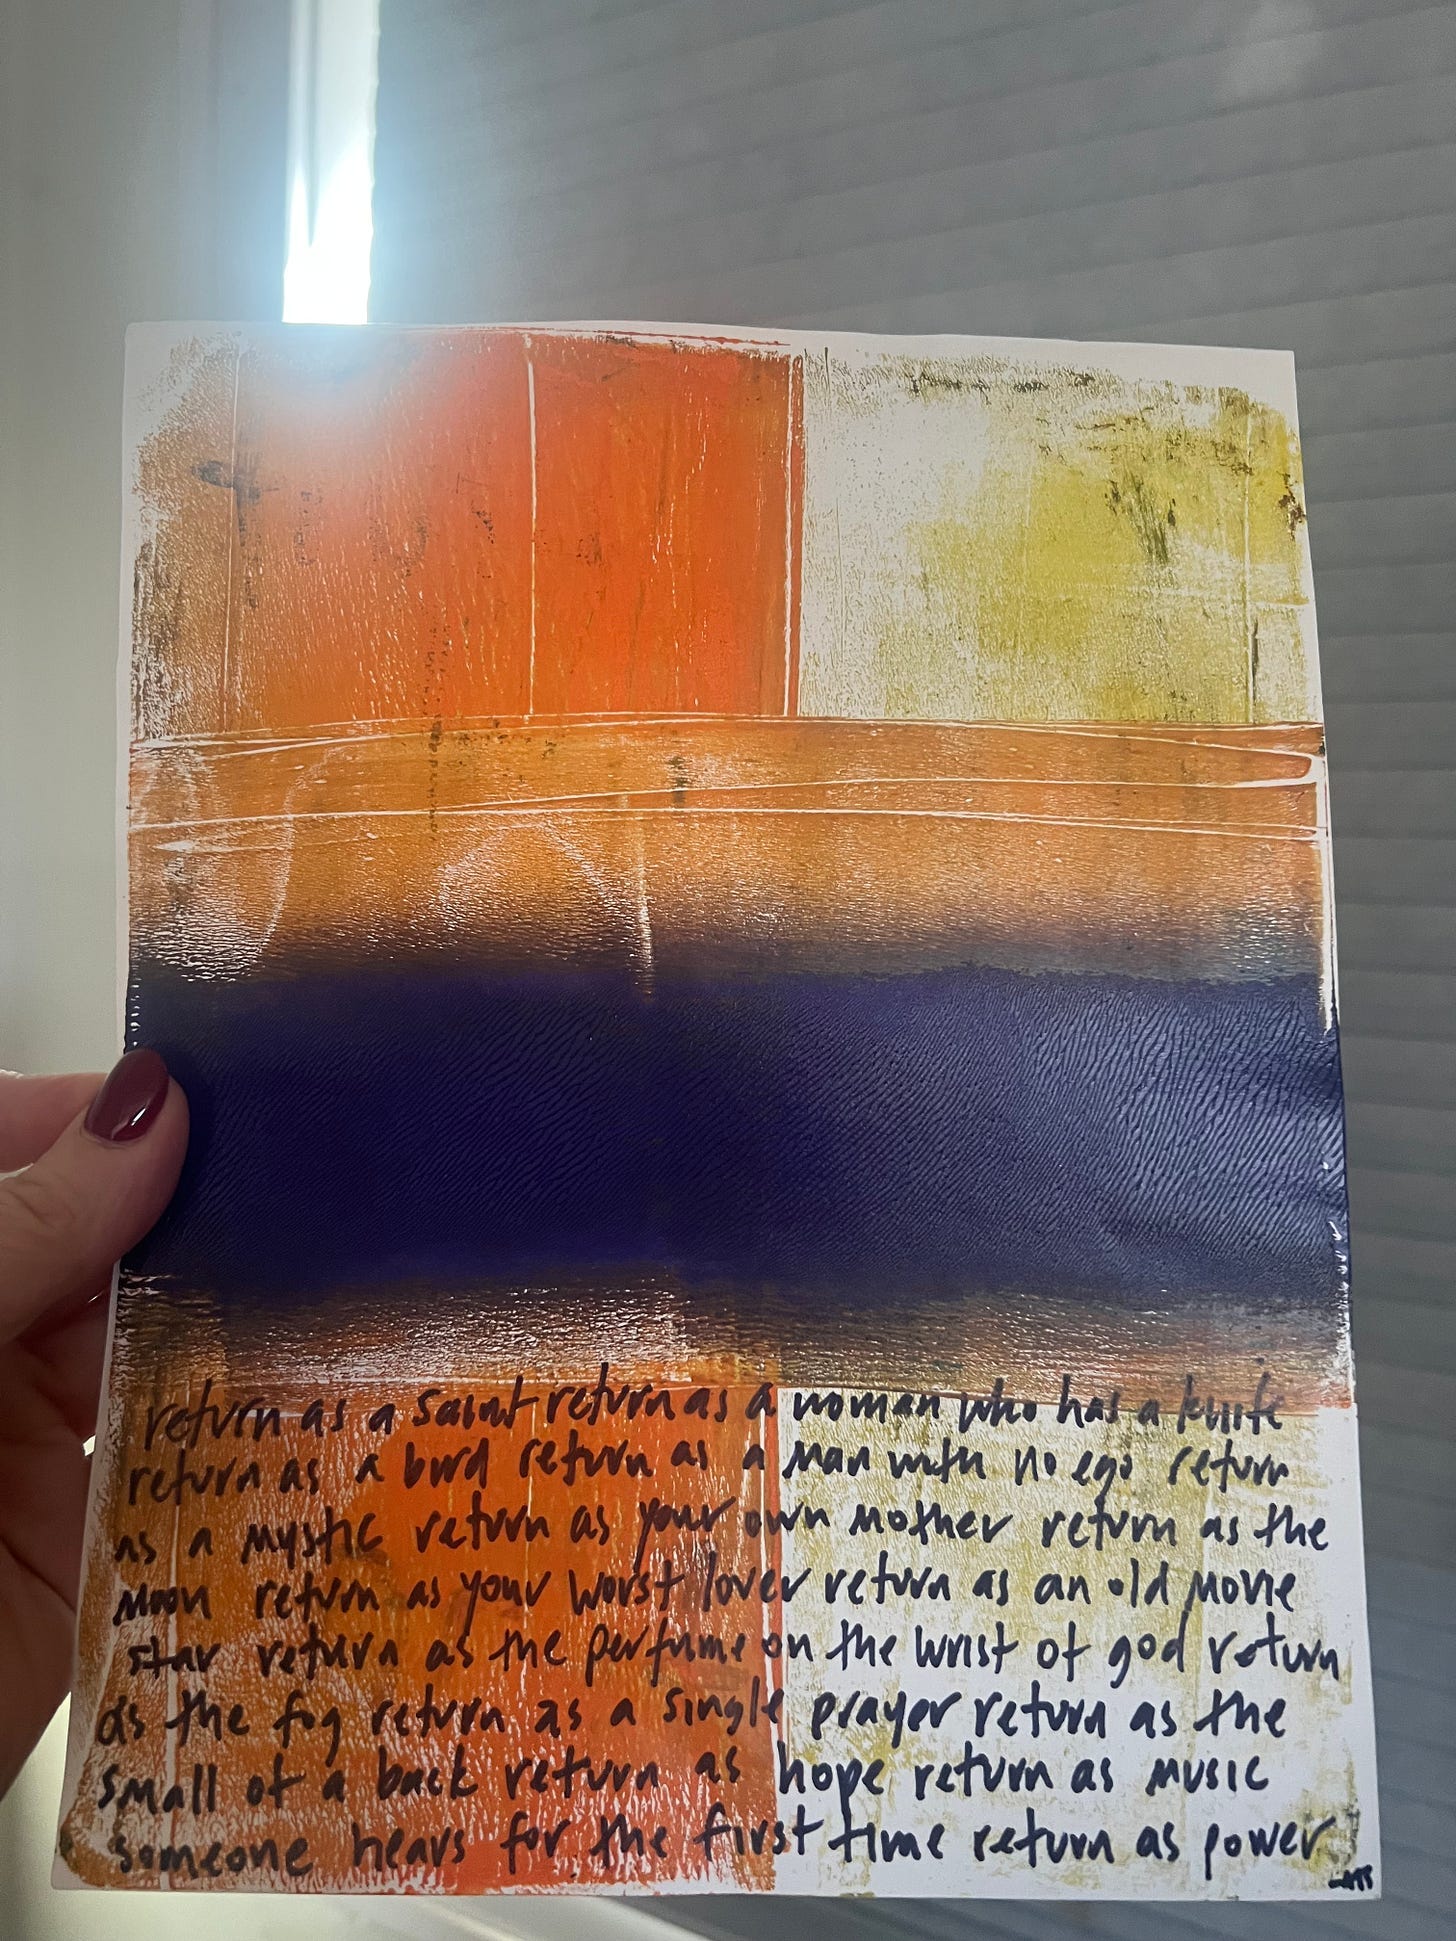 return as a saint return as a woman who has a knife
return as a bird return as a man with no ego return
as a mystic return as your own mother return as the
moon return as your worst lover return as an old movie
star return as the perfume on the wrist of god return
as the fog return as a single prayer return as the
small of a back return as hope return as music
someone hears for the first time return as power